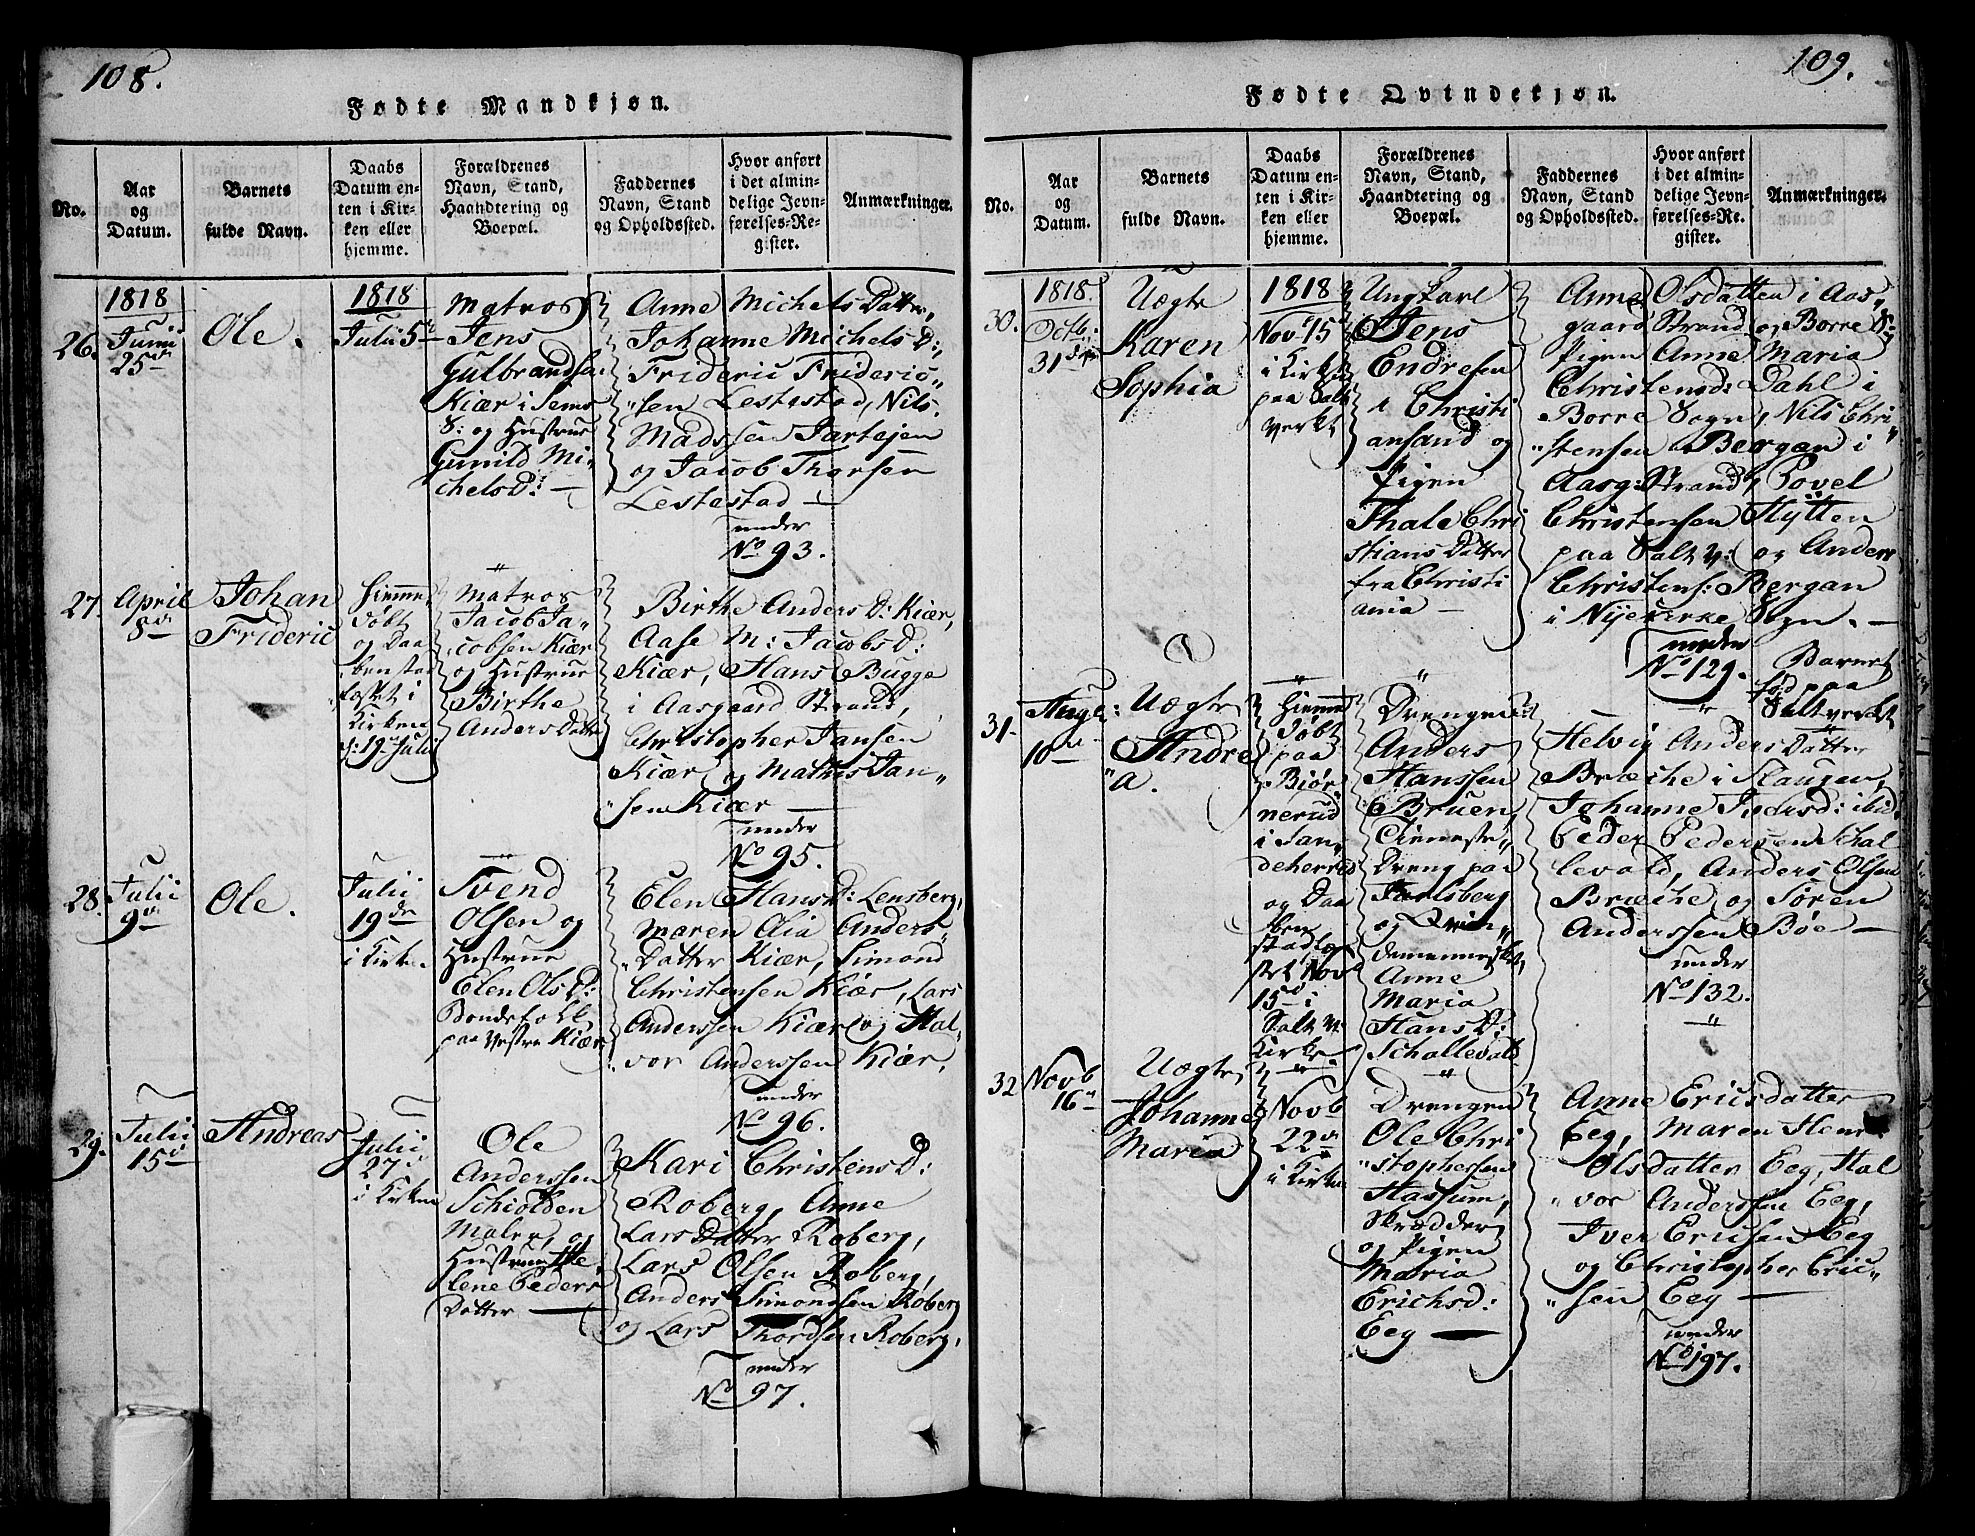 108.
Fødte Mandkjøn.
No.
Aar
og
Datum.
Barnets
fulde Navn.
Daabs
Datum en-
ten i Kir-
ken eller
hjemme.
Forældrenes
Navn, Stand,
Haandtering og
Boepæl.
Faddernes
Navn, Stand
og Opholdssted.
Hvor anført
i det almin-
delige Jevn-
førelses-Re-
gister.
Anmærkninger.
26.
1818
Junii
25de
Ole.
1818
Julii 5te
Matros
Jens
Gulbrandsen
Kiær i Sems
S: og Hustrue
Gunild Mi-
chelsD: —
Anne Michels Datter,
Johanne Michels D:,
Frideric Frideric„
„sen Lestestad, Nils
Madssen Jartejen
og Jacob Thorsen
Lestestad —
under
No 93.
27.
April
8de
Johan
Frideric
Hiemme
døbt
og Daa
ben stad
fæstet i
Kirken
d: 19de Julii
Matros
Jacob Ja-
cobsen Kiær
og Hustrue
Birthe
Anders Datter
Birthe Anders D: Kiær,
Aase M: Jacobs D:
Kiær, Hans Bugge
i Aasgaard Strand,
Christopher Jansen
Kiær og Mathis Jan„
„sen Kiær —
under
No 95.
28.
Julii
9de
Ole.
Julii
19de
i Kirken
Svend
Olsen og
Hustrue
Elen Ols D:
Bondefolk
paa Vestre Kiær
Elen Hans D: Lensberg,
Maren Lia Anders„
„Datter Kiær, Simond
Christensen Kiær, Lars
Anderssen Kiær og Hal„
vor Anderssen Kiær,
under
No 96.
29.
Julii
15de
Andreas
Julii
27.
i Kirken
Ole
Anderssen
Schiolden
Maler, og
Hustrue He„
lene Peders
Datter —
Kari Christens D:
Roberg, Anne
Lars Datter Roberg,
Lars Olsen Roberg,
Anders Simondssen Roberg
og Lars Thordsen Roberg,
under
No 97.
109.
Fødte Qvindekjøn.
No.
Aar
og
Datum.
Barnets
fulde Navn.
Daabs
Datum en-
ten i Kir-
ken eller
hjemme.
Forældrenes
Navn, Stand,
Haandtering og
Boepæl.
Faddernes
Navn, Stand
og Opholdssted.
Hvor anført
i det almin-
delige Jevn-
førelses-Re-
gister.
Anmærkninger.
30.
1818.
Octb:
31
Uægte
Karen
Sophia
1818
Novb 15
i Kirken
paa Salt
verket
Ungkarl
Jens
Endresen
i Christi
ansand og
Pigen
Thale Chri
stians Datter
fra Christi
ania —
Anne Olsdatter i Aas„
gaard Strand og Borre S:
Pigen Anne Maria
Christensd: Dahl i
Borre Sogn, Nils Chri„
„stensen Bergan i
Aasg: Strand, Povel
Christensen Hÿtten
paa Saltv: og Anders
Christens: Bergan
i Nÿekirke Sogn. —
under
No 129.
Barnet
fød paa
Saltverket
31.
Aug:
10de
Uægte
Andre
„a.
Hiemme
døbt
paa
Biør„
nerud
i San„
deherred
og Daa
ben
stadfæ
stet Nov
15de i
Salt v.
Kirke
Drengen
Anders
Hanssen
Bruen,
Tieneste„
Dreng paa
Jarlsberg
og Qvin„
demennesket,
Anne
Maria
Hans D:
Schallevald
Helvig Anders Datter
Bræche i Slaugen,
Johanne Iversd: ibid
Peder Pedersen Schal
levald, Anders Olsen
Bræche og Søren
Anderssen Bøe —
under
No 132.
32
Novb
16de
Uægte
Johanne
Maria
Novb
22de
i Kirken
Drengen
Ole Chri
„stophersen
Hassum,
Skrædder
og Pigen
Maria
Erichsd:
Eeg —
Anne Ericsdatter
Eeg, Maren
Olsdatter Eeg, Hal
„vor Anderssen Eeg,
Iver Ericsen Eeg
og Christopher Eric„
„sen Eeg —
under
No 197.